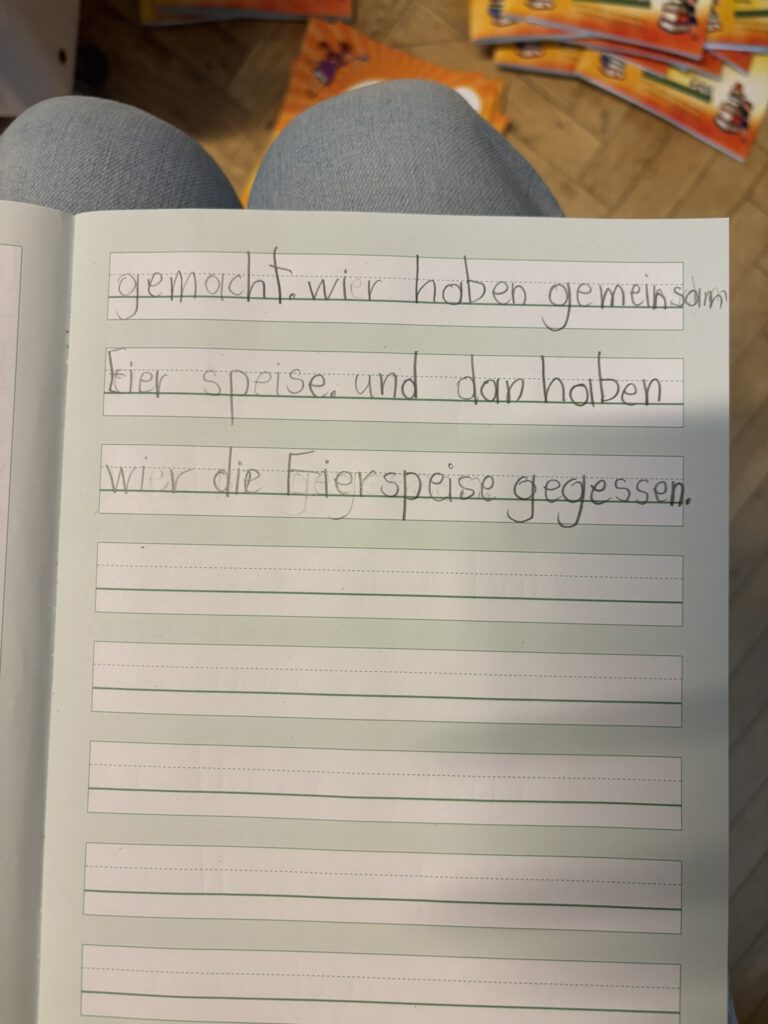 gemacht. wier haben gemeinsam
Eier speise. und dan haben
wier die Eierspeise gegessen.